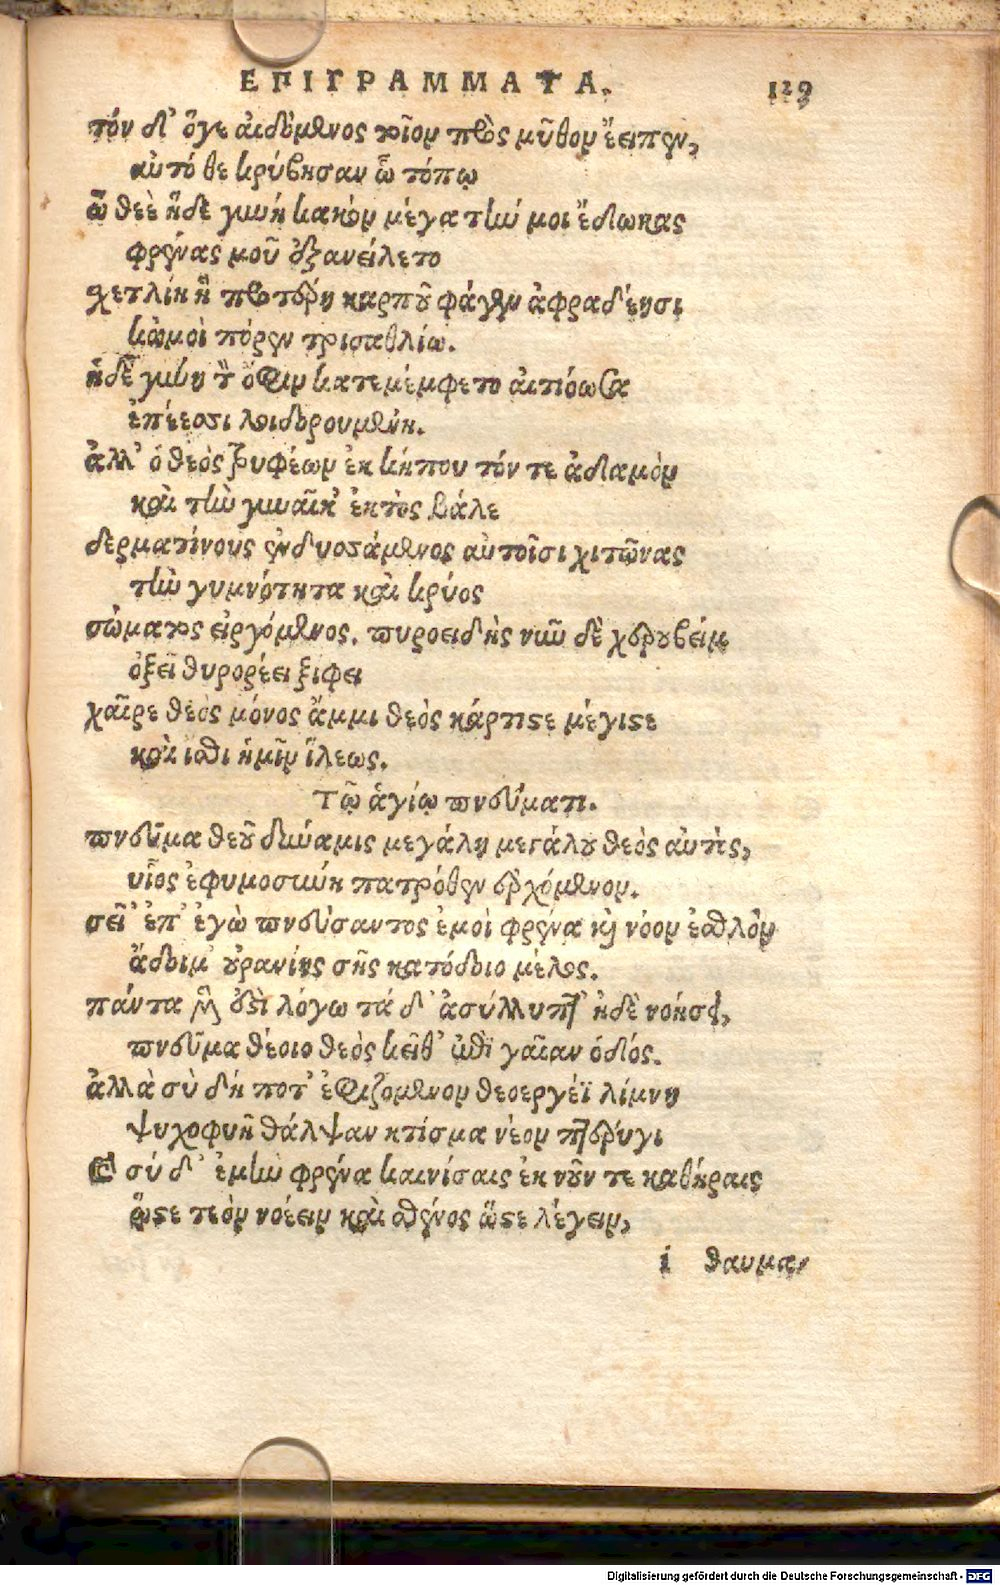 ΕΠΙΓΡΑΜΜΑΤΑ. 129
τόν δ' ὅγε αἰδόμενος τοῖον πρὸς μῦθον ἔειπεν,
αὐτόθε κρύβησαν ὦ τόπῳ
ὦ θεὲ ἥδε γυνή κακὸν μέγα τὴν μοι ἔδωκας
φρένας μοῦ ἐξανείλετο
χετλίη ἣ πρωτέρη καρποῦ φάγεν ἀφραδέῃσι
κᾀμοὶ πόρεν τρισαθλίω.
ἡδὲ γυνὴ τὸν ὄφιν κατεμέμφετο αἰτιόωσα
ἐπέεσσι λοιδορουμένη.
ἀλλ' ὁ θεὸς τρυφέων ἐκ κήπου τόν τε ἀδαμὸν
καὶ τὴν γυναῖκ' ἐκτὸς βάλε
δερματίνους ἐνδυσάμενος αὐτοῖσι χιτῶνας
τὴν γυμνότητα καὶ κρύος
σώματος εἰργόμενος. πυροειδὴς νῦν δὲ χερουβείμ
ὀξεῖ θυρορέει ξιφει
χαῖρε θεὸς μόνος ἄμμι θεὸς κάρτιστε μέγιστε
καὶ ἴσθι ἡμῖν ἵλεως.
Τῷ ἁγίῳ πνεύματι.
πνεῦμα θεοῦ δύναμις μεγάλη μεγάλου θεὸς αὐτῆς,
υἷος ἐφυμοσύνη πατρόθεν ἐρχόμενον.
σεῖ' ἐπ' ἐγὼ πνεύσαντος ἐμοὶ φρένα καὶ νόον ἐσθλὸν
ᾄδοιμ' οὐρανίης σῆς κατόδοιο μέλος.
πάντα ἐξὶ λόγω τά δ' ἀσύλλυπτ' ἠδὲ νοῆσαι,
πνεῦμα θέοιο θεὸς κεῖθ' ὠθὶ γαῖαν ὁδός.
ἀλλὰ σὺ δή ποτ' ἐφιζόμενον θεοεργέϊ λίμνῃ
ψυχοφυῆ θάλψαν κτίσμα νέον πτέρυγι
σύ δ' ἐμὴν φρένα καινίσαις ἐκ νοῦν τε καθήραις
ὥστε τεὸν νοέειν καὶ σθένος ὥστε λέγειν,
i θαυμα